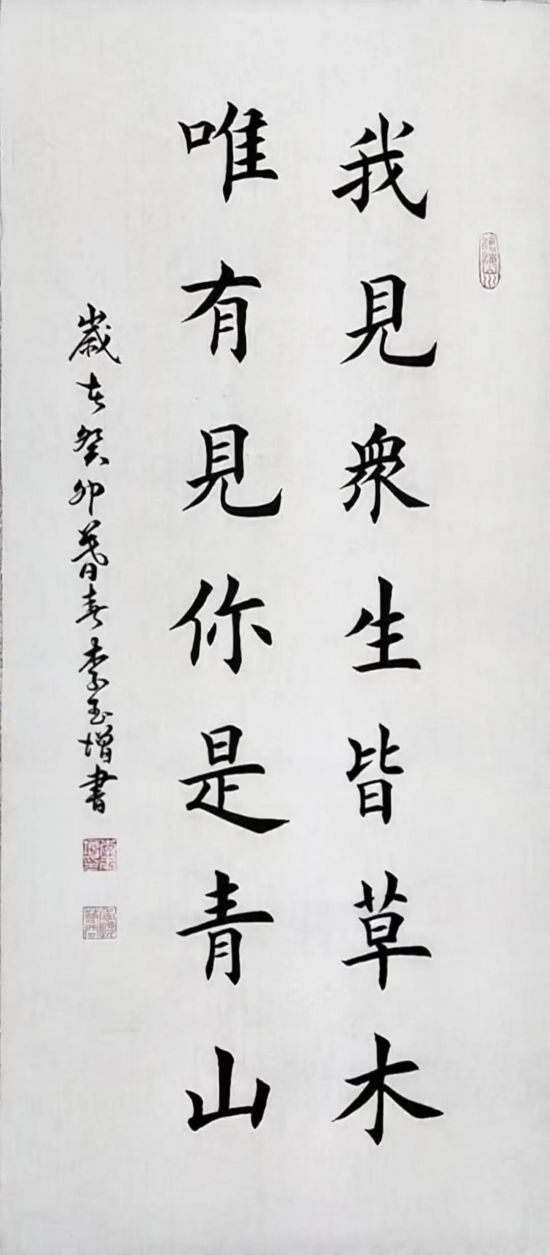 我見衆生皆草木
唯有見你是青山
歲在癸卯暮春李玉增書